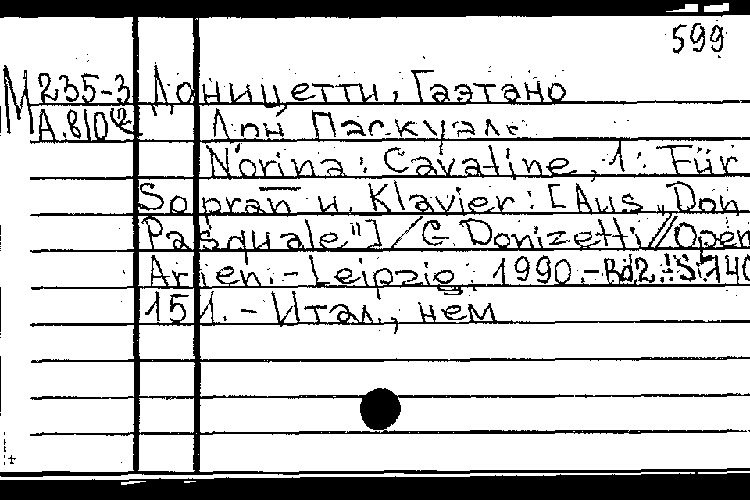 599
М 235-3 Доницетти, Гаэтано
А.810 Дон Паскуаль
Norina: Cavatine, 1: Für
Sopran u. Klavier: [Aus "Don
Pasquale"] / G. Donizetti // Opern
Arien. - Leipzig, 1990. - Bd2. - S.140
151. - Итал., нем